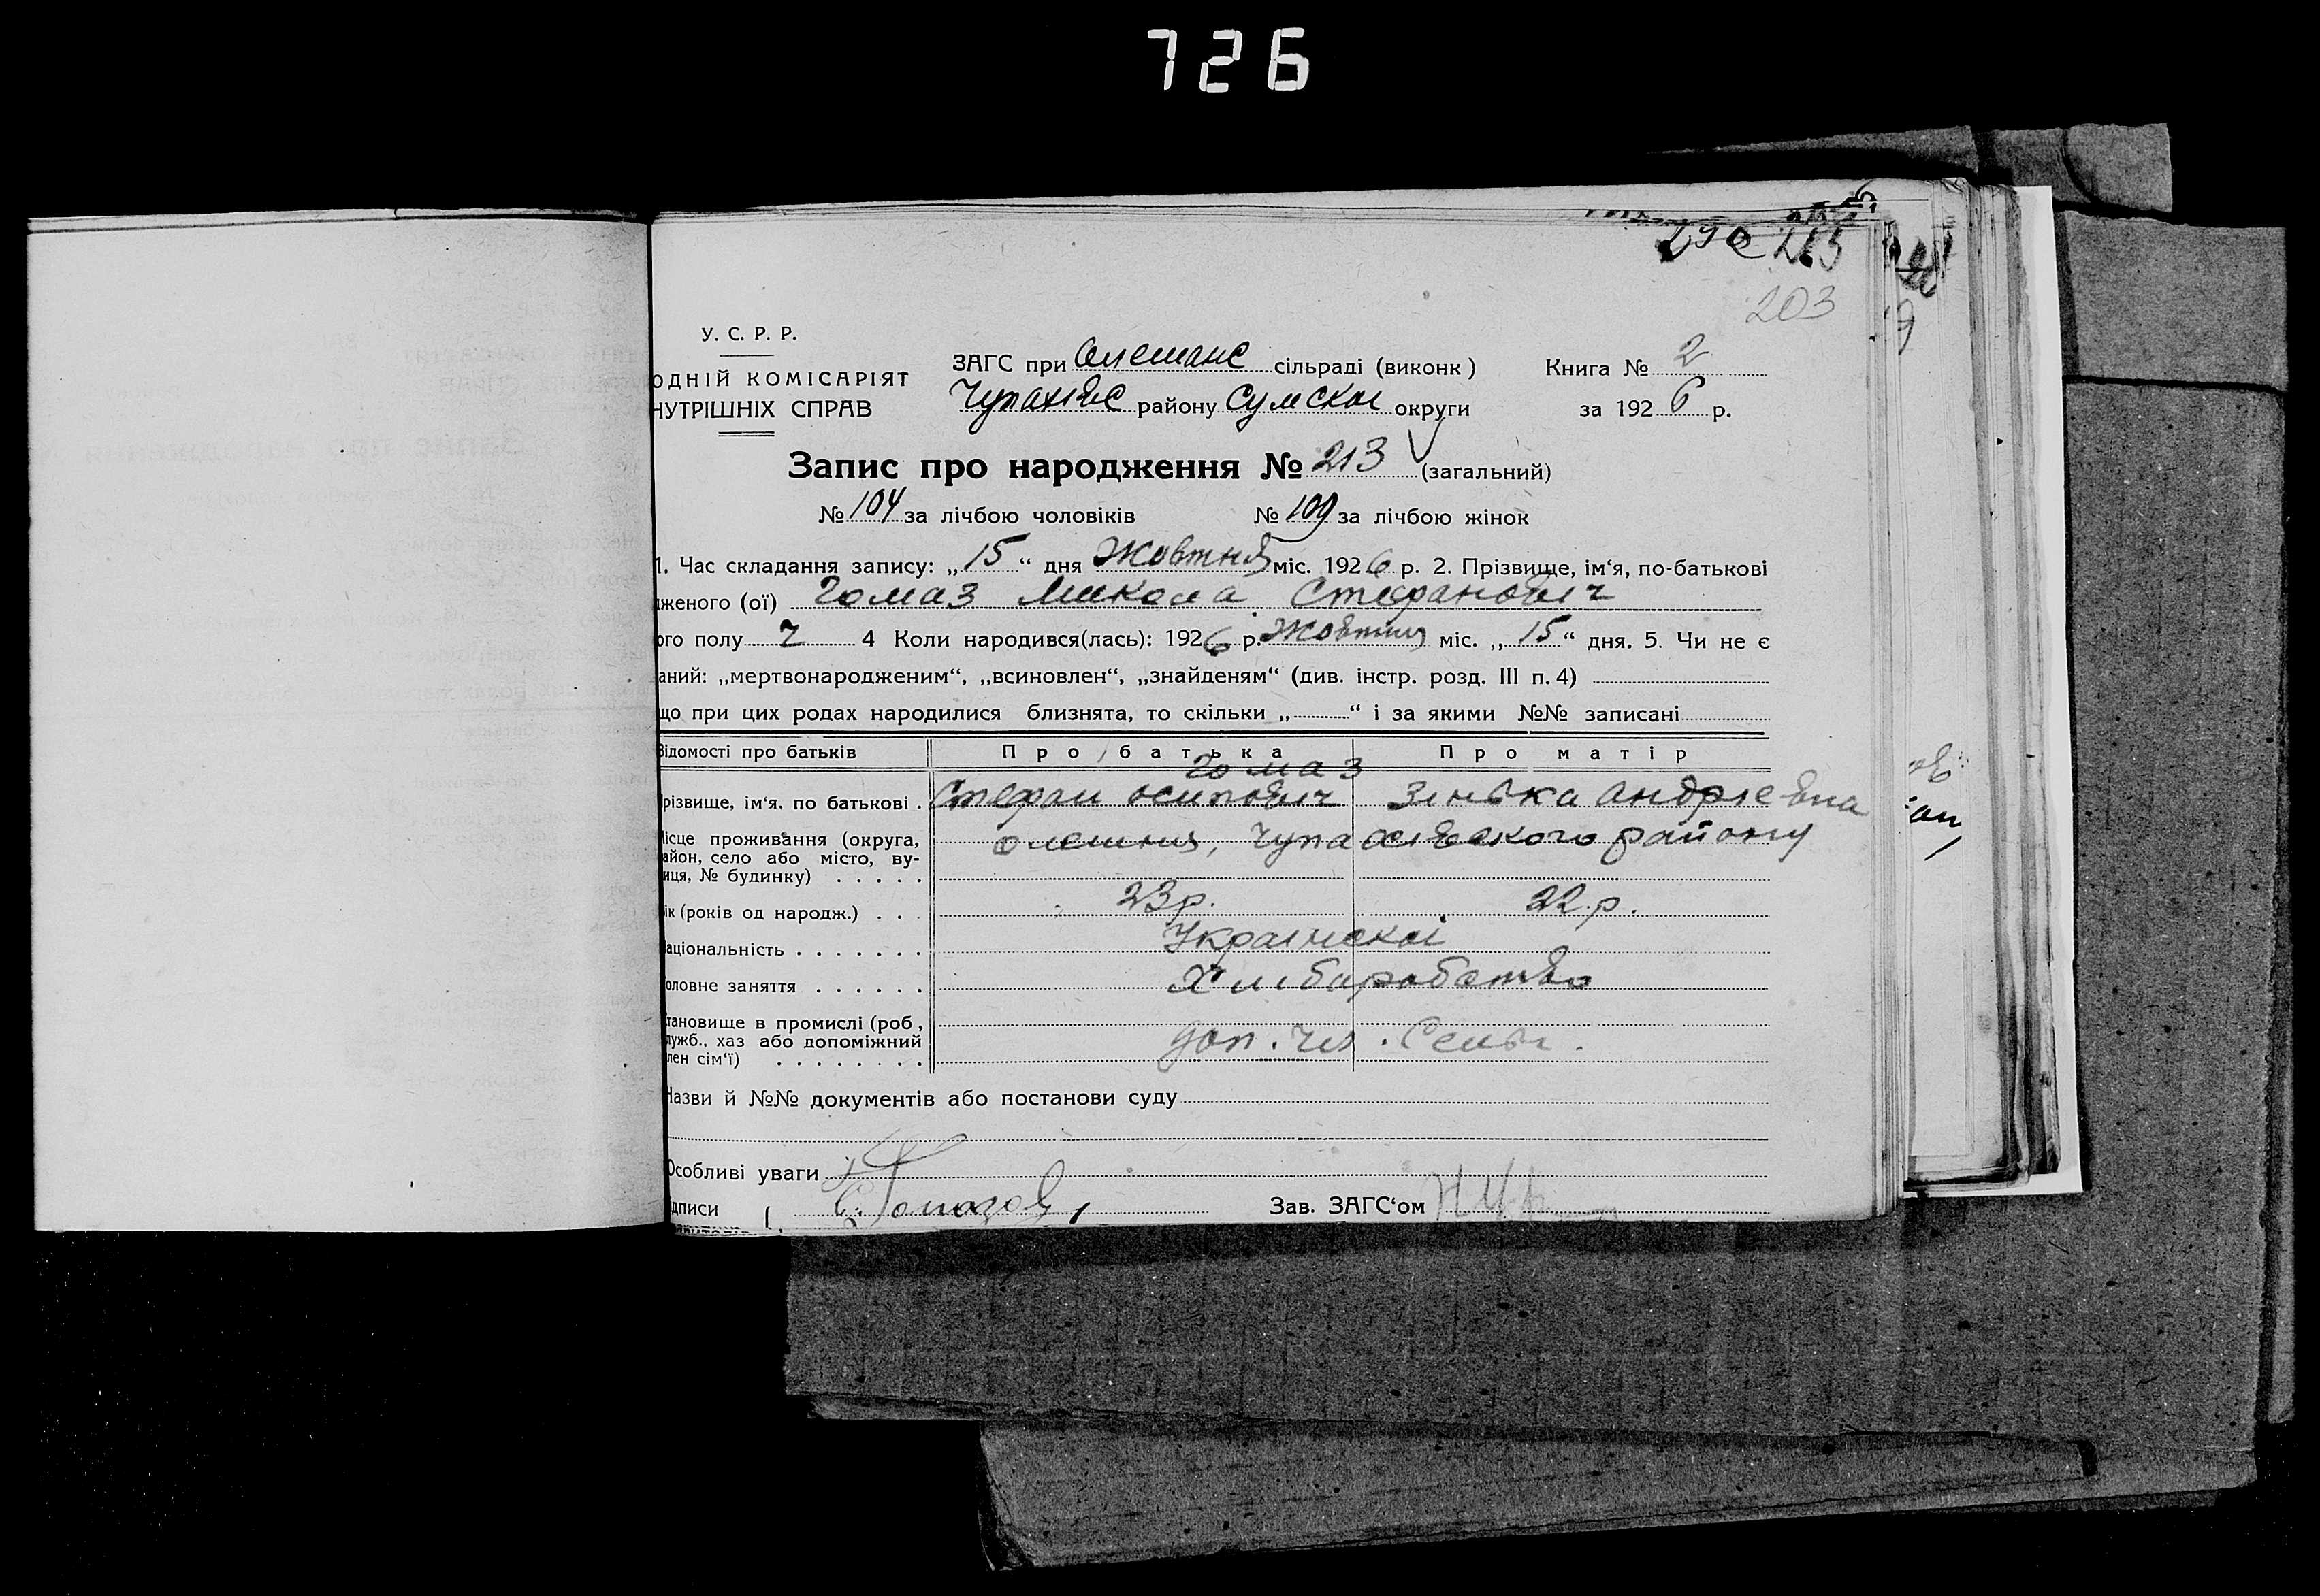 726
290 213
203
У. С. Р. Р.
ОДНІЙ КОМІСАРІЯТ
НУТРІШНІХ СПРАВ
ЗАГС при Олешанс сільраді (виконк)
Чупахівс району Сумскої округи
Книга № 2
за 1926 р.
Запис про народження № 213 (загальний)
№ 104 за лічбою чоловіків № 109 за лічбою жінок
1. Час складання запису: „15“ дня Жовтня міс. 1926 р. 2. Прізвище, ім‘я, по-батькові
дженого (ої) Гомаз Микола Стефанович
ого полу ч 4 Коли народився(лась): 1926 р. Жовтня міс. „15“ дня. 5. Чи не є
аний: „мертвонародженим“, „всиновлен“, „знайденям“ (див. інстр. розд. III п. 4)
що при цих родах народилися близнята, то скільки „ “ і за якими №№ записані
Відомості про батьків Про батька Про матір
Гомаз
різвище, ім‘я, по батькові . Стефан осипович Зінька андрієвна
Місце проживання (округа, олешня, Чупахівского району
айон, село або місто, ву-
иця, № будинку) . . . . .
ік (років од народж.) . . . 23 р. 22 р.
аціональність . . . . . . . Українскої
оловне заняття . . . . . . Хлібаробство
тановище в промислі (роб.,
лужб., хаз або допоміжний доп. чл. Семьї.
лен сім‘ї) . . . . . . . .
Назви й №№ документів або постанови суду
Особливі уваги
ідписи Зав. ЗАГС‘ом